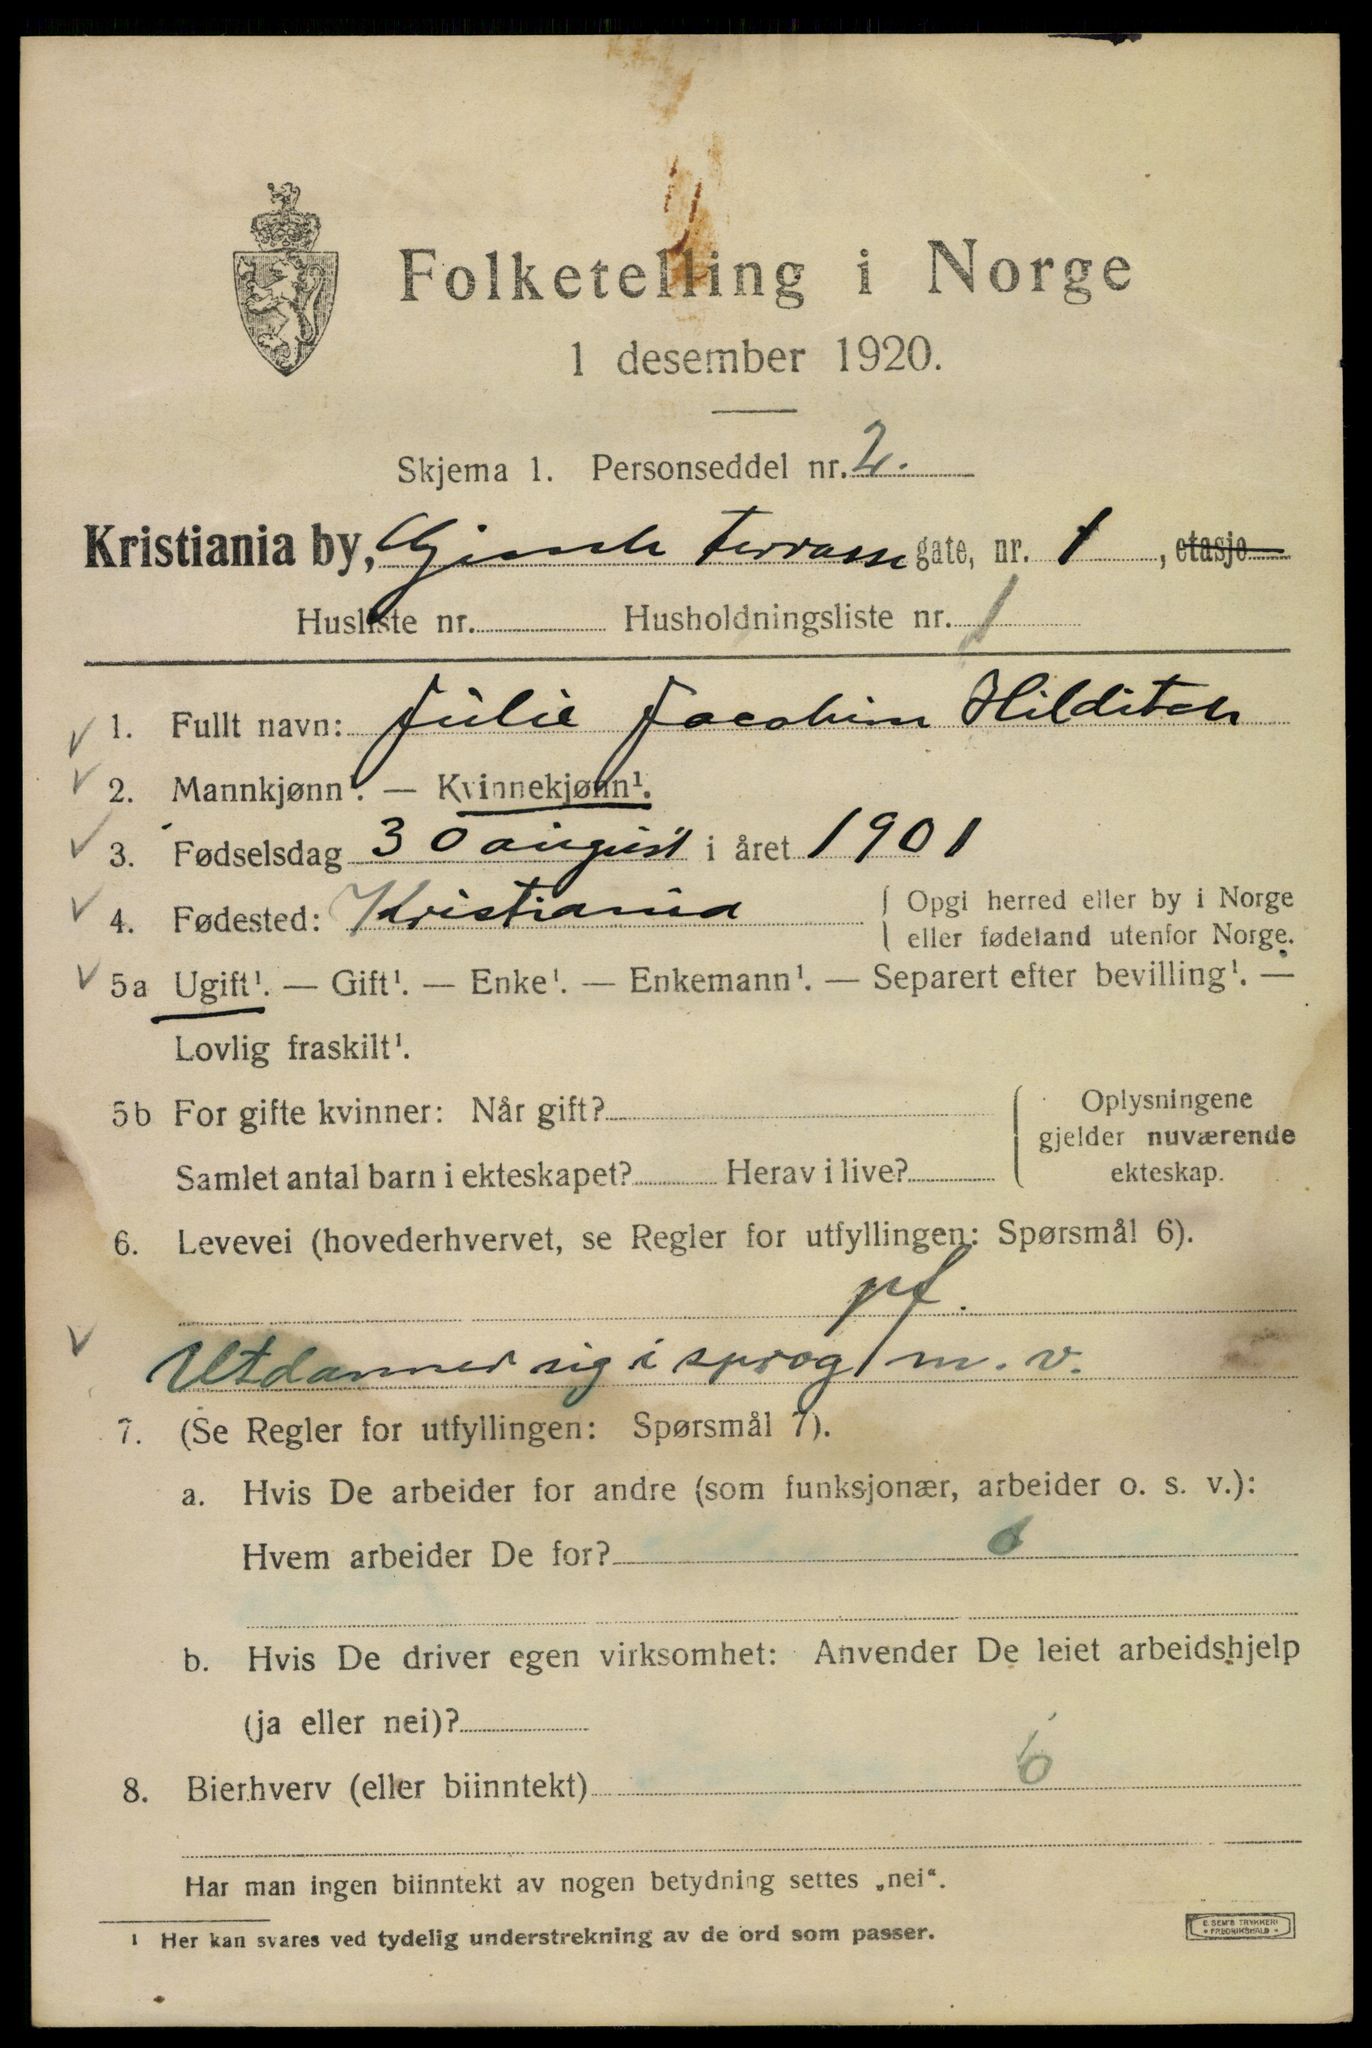 Folketelling i Norge
1 desember 1920.
Skjema 1. Personseddel nr. 2.
Kristiania by, Gimle terrasse gate, nr. 1, etasje
Husliste nr. Husholdningsliste nr. 1
1. Fullt navn: Julie Jacobine Hilditch
2. Mannkjønn¹. — Kvinnekjønn¹.
3. Fødselsdag 30 august i året 1901
4. Fødested: Kristiania { Opgi herred eller by i Norge
eller fødeland utenfor Norge.
5a Ugift¹. — Gift¹. — Enke¹. — Enkemann¹. — Separert efter bevilling¹. —
Lovlig fraskilt¹.
5b For gifte kvinner: Når gift? { Oplysningene
gjelder nuværende
Samlet antal barn i ekteskapet? Herav i live? ekteskap.
6. Levevei (hovederhvervet, se Regler for utfyllingen: Spørsmål 6).
pf.
Utdanner sig i sprog m. v.
7. (Se Regler for utfyllingen: Spørsmål 7).
a. Hvis De arbeider for andre (som funksjonær, arbeider o. s. v.):
Hvem arbeider De for?
b. Hvis De driver egen virksomhet: Anvender De leiet arbeidshjelp
(ja eller nei)?
8. Bierhverv (eller biinntekt)
Har man ingen biinntekt av nogen betydning settes „nei“.
¹ Her kan svares ved tydelig understrekning av de ord som passer.
E. SEM'S TRYKKERI
• FREDRIKSHALD •